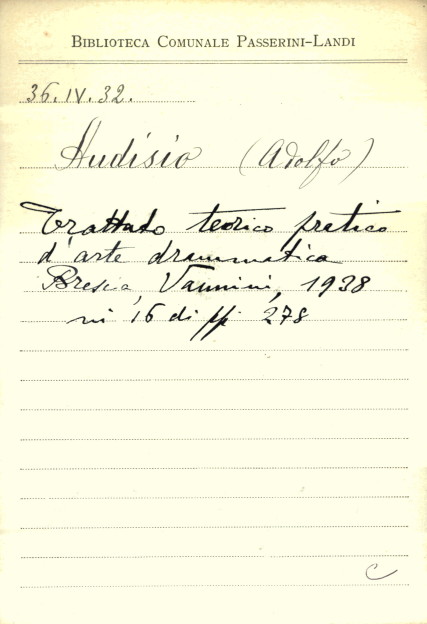 BIBLIOTECA COMUNALE PASSERINI-LANDI
36.IV.32.
Audisio (Adolfo)
Trattato teorico pratico
d'arte drammatica
Brescia, Vannini, 1938
in 16 di pp. 278
C